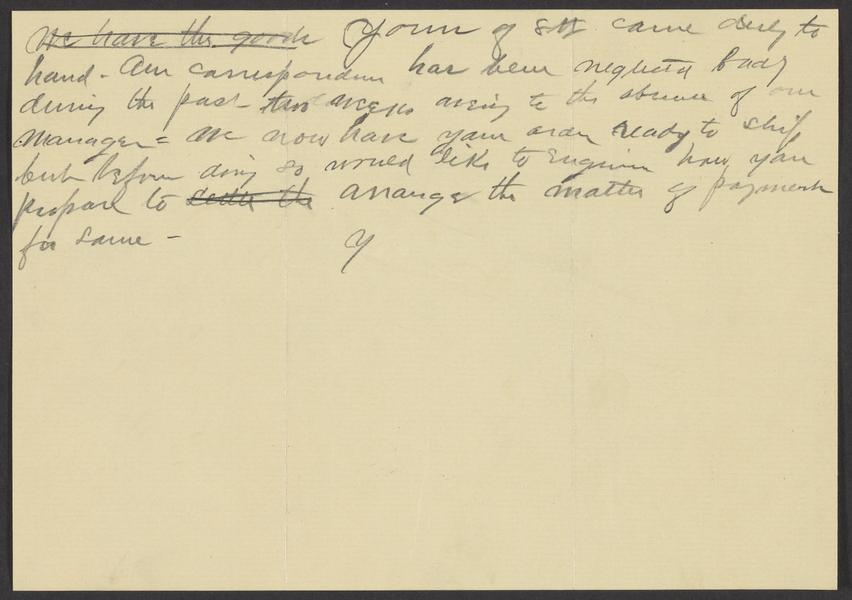 We have the goods Yours of 8th came duly to
hand - Our correspondence has been neglected badly
during the past two weeks owing to the absence of our
Manager = We now have your order ready to ship
but before doing so would like to Enquire how you
propose to settle the arrange the matter of payment
for same - Y